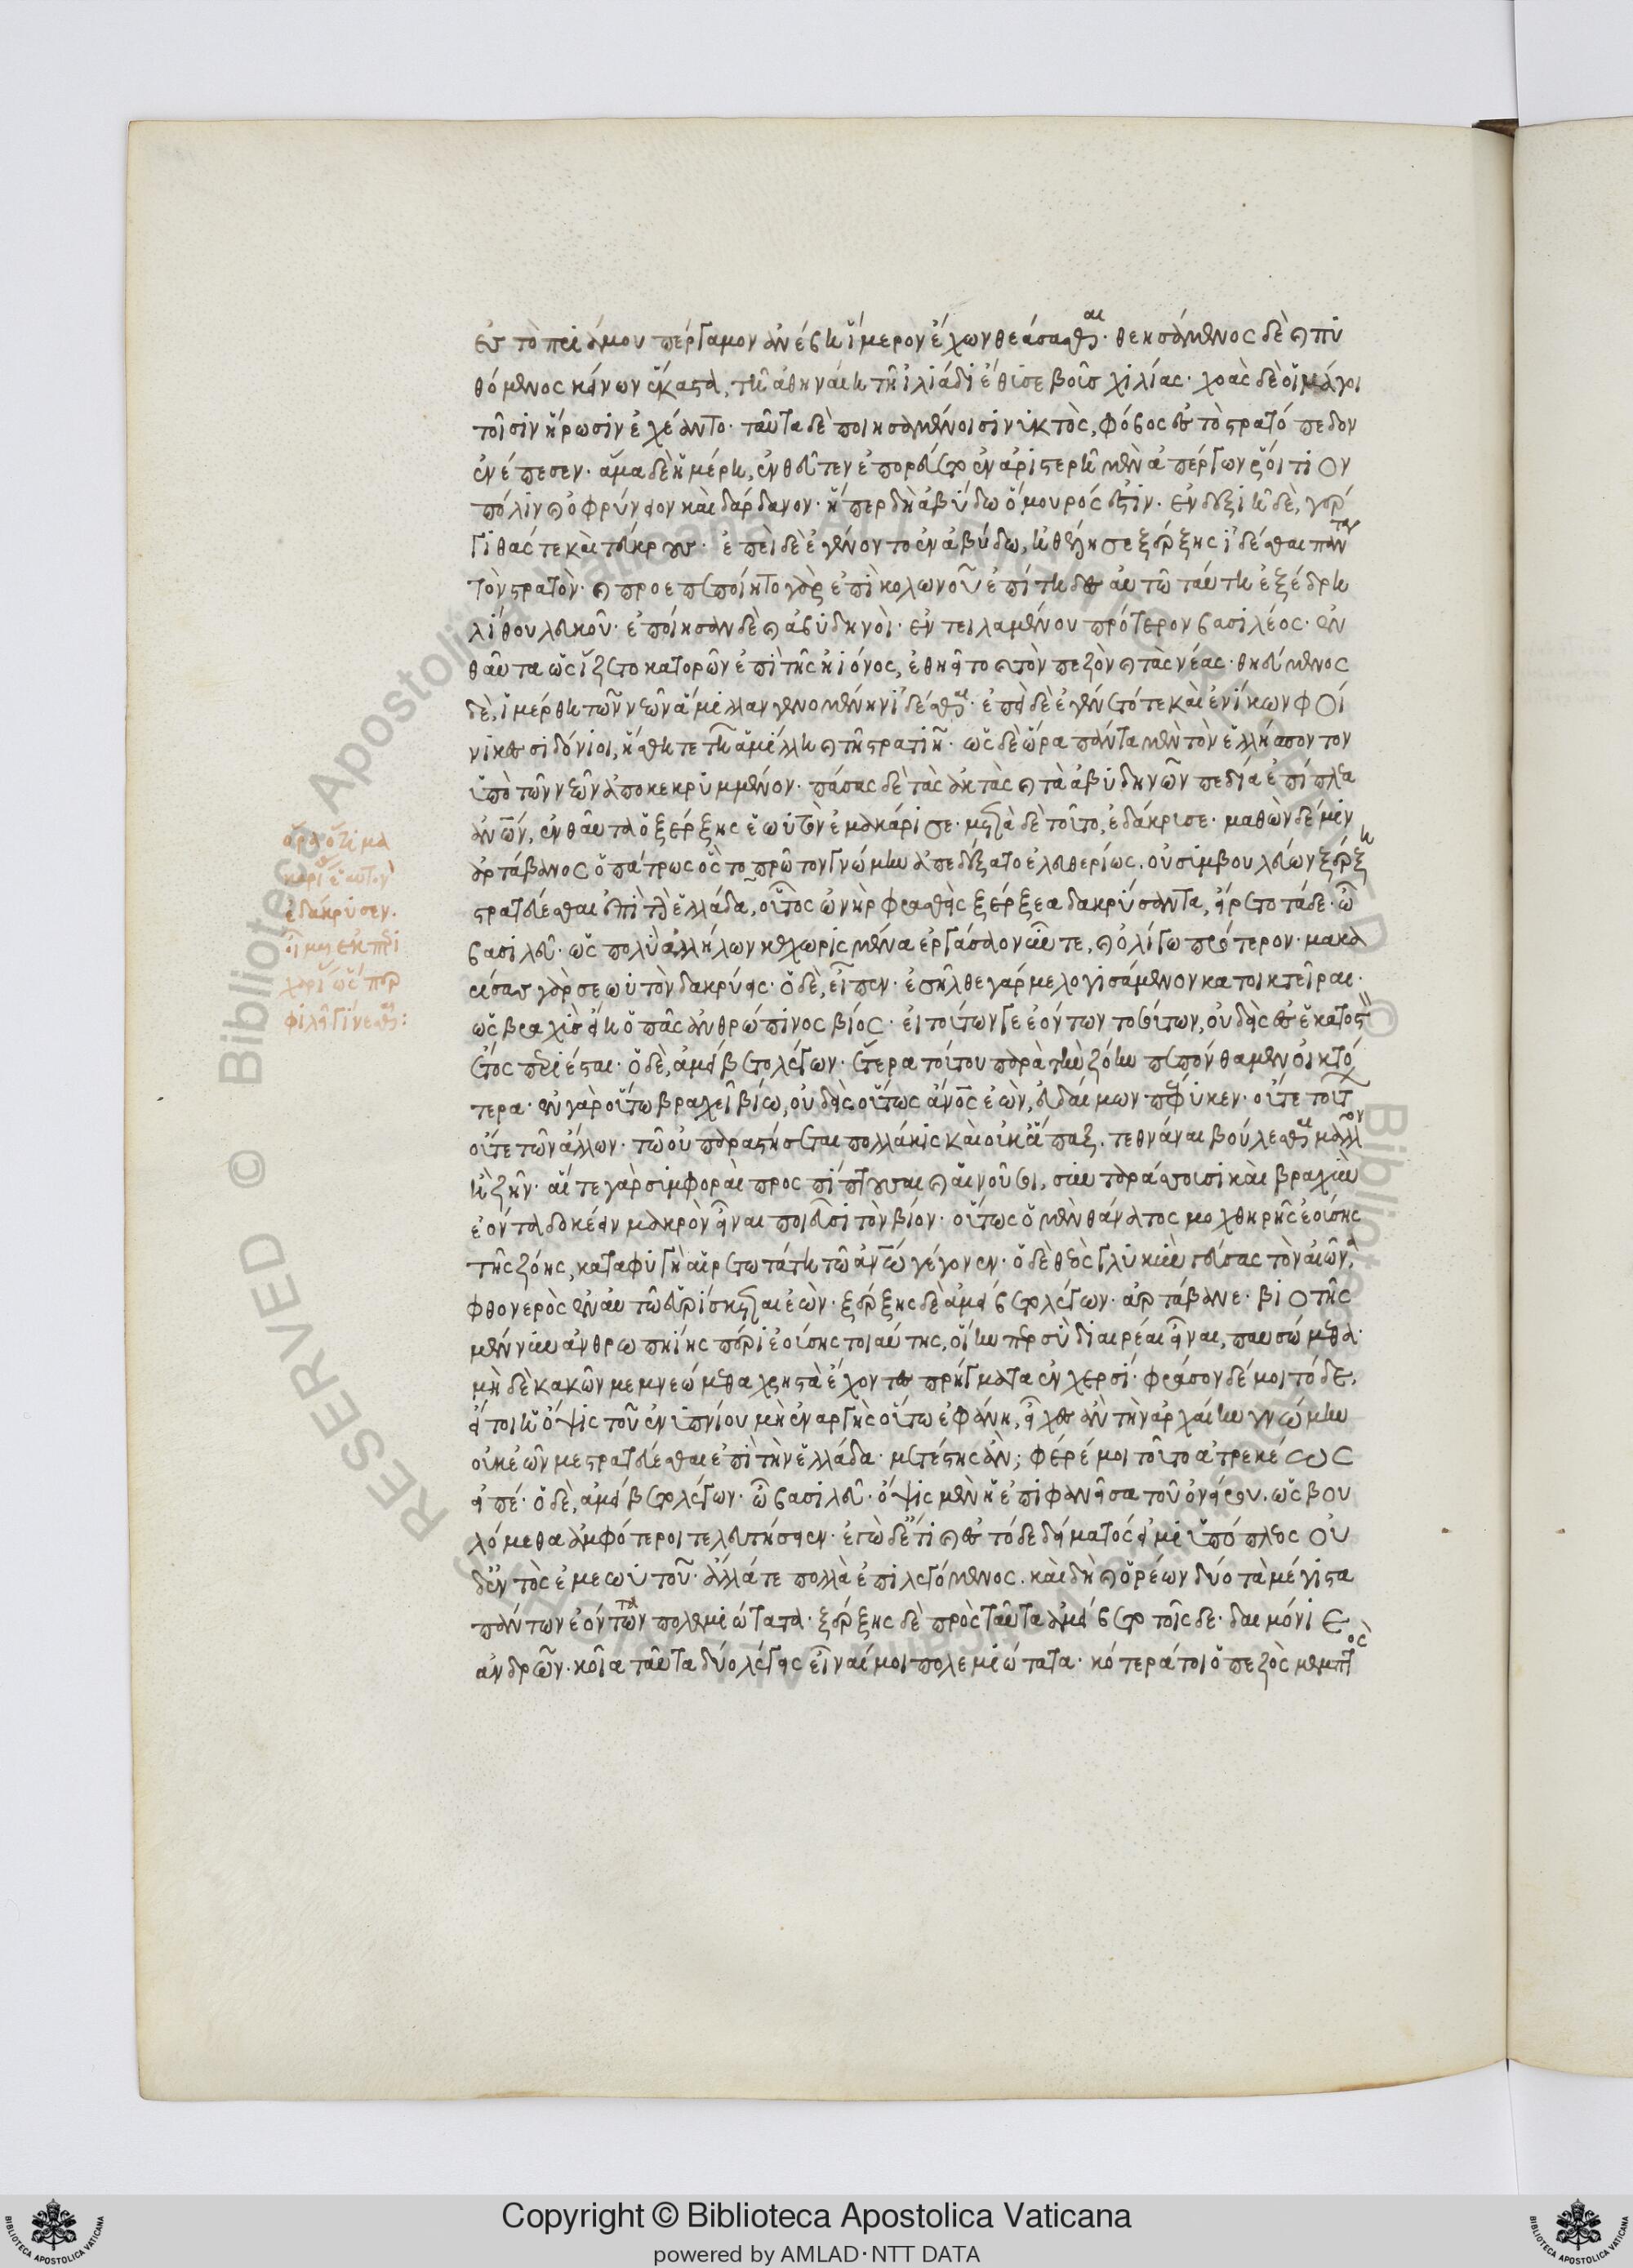 ἐς τὸ πριάμου πέργαμον ἀνέβη ἵμερον ἔχων θεάσασθαι· θεησάμενος δὲ καὶ πυ
θόμενος κείνων ἕκαστα, τῆ ἀθηναίη τῆ ἰλιάδι ἔθισε βοῦς χιλίας· χοὰς δὲ οἱ μάγοι
τοῖσιν ἥρωσιν ἐχέαντο· ταῦτα δὲ ποιησαμένοισι νυκτὸς, φόβος ἐς τὸ στρατόπεδον
ἐνέπεσεν· ἅμα δὲ ἡμέρη, ἐνθεῦτεν ἐπορεύετο ἐν ἀριστερῆ μὲν ἀπέργων ῥοίτιον
πόλιν καὶ ὀφρύνειον καὶ δάρδανον· ἥπερ δὴ ἀβύδω ὅμουρός ἐστιν· ἐν δεξιῆ δὲ, γέρ
γιθας τε καὶ τευκρους· ἐπεὶ δὲ ἐγένοντο ἐν ἀβύδω, ἠθέλησε ξέρξης ἰδέσθαι πάντα
τὸν στρατὸν· καὶ προεπεποίητο γὰρ ἐπὶ κολωνοῦ ἐπίτηδες αὐτῶ ταύτη ἐξέδρη
λίθου λευκοῦ· ἐποίησαν δὲ καὶ ἀβυδηνοὶ· ἐντειλαμένου πρότερον βασιλέος· ἐν
θαῦτα ὡς ἵζετο κατορῶν ἐπὶ τῆς ἠιόνος, ἐθηεῖτο καὶ τὸν πεζὸν καὶ τὰς νέας· θηεύμενος
δὲ, ἱμέρθη τῶν νεῶν ἅμιλλαν γενομένην ἰδέσθαι· ἐπεὶ δὲ ἐγένετό τε καὶ ἐνίκων φοί
νικες σιδόνιοι, ἥσθη τε τῆ ἁμίλλη καὶ τῆ στρατιῆ· ὡς δὲ ὥρα πάντα μὲν τὸν ἑλλήσποντον
ὑπὸ τῶν νεῶν ἀποκεκρυμμένον· πάσας δὲ τὰς ἀκτὰς καὶ τὰ ἀβυδηνῶν πεδία ἐπίπλεα
ἀνῶν, ἐνθαῦτα ὁ ξέρξης ἑωυτὸν ἐμακάρισε· μετὰ δὲ τοῦτο, ἐδάκρυσε· μαθὼν δέ μιν
ἀρτάβανος ὁ πάτρως ὃς τὸ πρῶτον γνώμην ἀπεδέξατο ἐλευθερίως. οὐ συμβουλεύων ξέρξη
στρατεύεσθαι ἐπὶ τὴν ἑλλάδα, οὗτος ὡνὴρ φρασθεὶς ξέρξεα δακρύσαντα, εἴρετο τάδε· ὦ
βασιλεῦ· ὡς πολὺ ἀλλήλων κεχωρισμένα ἐργάσαο νῦν τε, καὶ ὀλίγω πρότερον· μακα
ρίσας γὰρ σεωυτὸν δακρύεις· ὁ δὲ, εἶπεν· ἐσῆλθε γάρ με λογισάμενον κατοικτεῖραι·
ὡς βραχὺς εἴη ὁ πᾶς ἀνθρώπινος βίος· εἰ τούτων γε ἐόντων τοσούτων, οὐδεὶς ἐς ἑκατοστὸν
ἔτος περιέσται· ὁ δὲ, ἀμείβετο λέγων· ἕτερα τούτου παρὰ τὴν ζόην πεπόνθαμεν οἰκτρό
τερα· ἐν γὰρ οὕτω βραχεῖ βίω, οὐδεὶς οὕτως ἀνος ἐὼν, εὐδαίμων πέφυκεν· οὔτε τούτων
οὔτε τῶν ἄλλων· τῶ οὐ παραστήσεται πολλάκις καὶ οὐκὶ ἅπαξ. τεθνάναι βούλεσθαι μᾶλλον
ἢ ζῆν· αἵ τε γὰρ συμφοραὶ προσπίπτουσαι καὶ αἱ νοῦσοι, συνταράσσουσι καὶ βραχὺν
ἐόντα δοκέειν μακρὸν εἶναι ποιεῦσι τὸν βίον· οὕτως ὁ μὲν θάνατος μοχθηρῆς ἐούσης
τῆς ζόης, καταφυγὴ αἱρετωτάτη τῶ ἀνῶ γέγονεν· ὁ δὲ θεὸς γλυκὺν γεύσας τὸν αἰῶνα,
φθονερὸς ἐν αὐτῶ εὑρίσκεται ἐών· ξέρξης δὲ ἀμείβετο λέγων· ἀρτάβανε· βιοτῆς
μέν νυν ἀνθρωπηίης πέρι ἐούσης τοιαύτης, οἵην περ σὺ διαιρέαι εἶναι, παυσώμεθα·
μὴ δὲ κακῶν μεμνεώμεθα χρηστὰ ἔχοντες πρήγματα ἐν χερσί· φράσον δέ μοι τόδε.
εἴ τοι ἡ ὄψις τοῦ ἐνυπνίου μὴ ἐναργὴς οὕτω ἐφάνη, εἶχες ἂν τὴν ἀρχαίην γνώμην
οὐκ ἐῶν με στρατεύεσθαι ἐπὶ τὴν ἑλλάδα· ἢ μετέστης ἄν; φέρέ μοι τοῦτο ἀτρεκέως
εἰπέ· ὁ δὲ, ἀμείβετο λέγων· ὦ βασιλεῦ· ὄψις μὲν ἡ ἐπιφανεῖσα τοῦ ὀνείρου. ὡς βου
λόμεθα ἀμφότεροι τελευτήσειεν· ἐγὼ δ' ἔτι καὶ ἐς τόδε δείματός εἰμι ὑπόπλεος οὐ
δ' ἐντὸς ἐμεωυτοῦ· ἄλλά τε πολλὰ ἐπιλεγόμενος. καὶ δὴ καὶ ὁρέων δύο τὰ μέγιστα
πάντων ἐόντα πολεμιώτατα· ξέρξης δὲ πρὸς ταῦτα ἀμείβετο τοῖσδε· δαιμόνιε
ἀνδρῶν· κοῖα ταῦτα δύο λέγεις εἶναί μοι πολεμιώτατα· κότερά τοι ὁ πεζὸς μεμπτὸς
ὅρα ὅτι μα
καρί ἑαυτὸν
ἐδάκρυσεν.